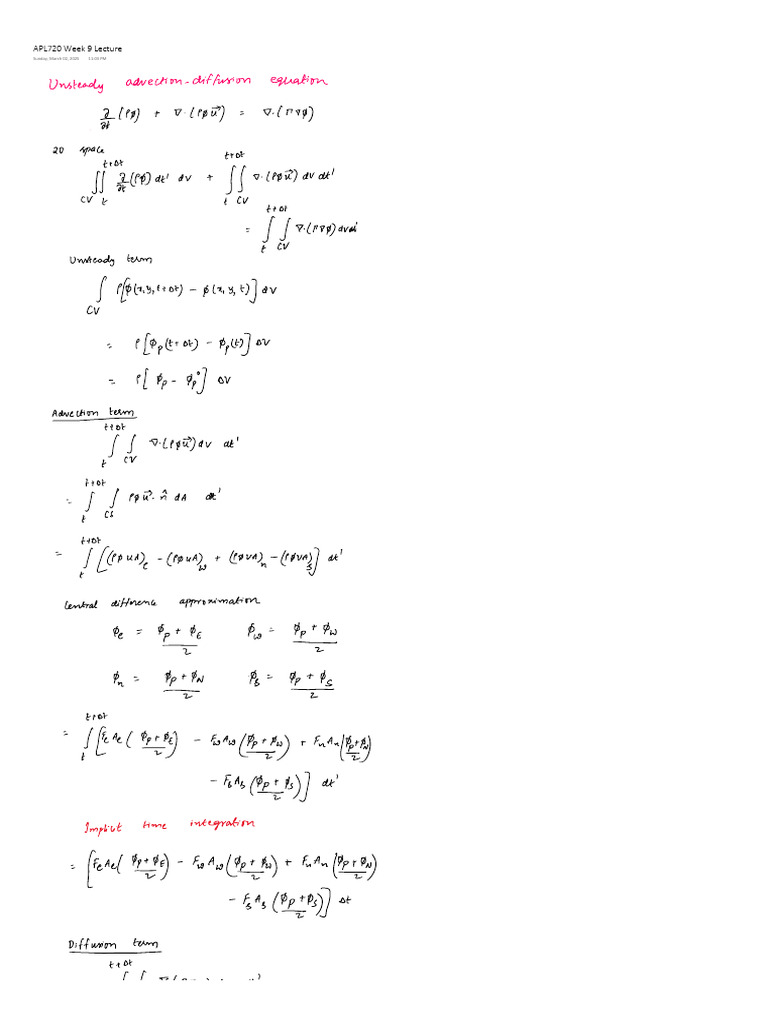 APL720 Week 9 Lecture
Unsteady advection-diffusion equation
∂/∂t (ρφ) + ∇·(ρφu⃗) = ∇·(Γ∇φ)
2D space
∫_CV ∫_t^{t+Δt} ∂/∂t (ρφ) dt' dV + ∫_t^{t+Δt} ∫_CV ∇·(ρφu⃗) dV dt'
= ∫_t^{t+Δt} ∫_CV ∇·(Γ∇φ) dV dt'
Unsteady term
∫_CV ρ[φ(x,y,t+Δt) − φ(x,y,t)] dV
= ρ[φ_P(t+Δt) − φ_P(t)] ΔV
= ρ[φ_P − φ_P°] ΔV
Advection term
∫_t^{t+Δt} ∫_CV ∇·(ρφu⃗) dV dt'
= ∫_t^{t+Δt} ∫_CS ρφu⃗·n̂ dA dt'
= ∫_t^{t+Δt} [(ρφuA)_e − (ρφuA)_w + (ρφvA)_n − (ρφvA)_s] dt'
Central difference approximation
φ_e = (φ_P + φ_E)/2 φ_w = (φ_P + φ_W)/2
φ_n = (φ_P + φ_N)/2 φ_s = (φ_P + φ_S)/2
= ∫_t^{t+Δt} [F_e A_e ((φ_P + φ_E)/2) − F_w A_w ((φ_P + φ_W)/2) + F_n A_n ((φ_P + φ_N)/2)
− F_s A_s ((φ_P + φ_S)/2)] dt'
Implicit time integration
= [F_e A_e ((φ_P + φ_E)/2) − F_w A_w ((φ_P + φ_W)/2) + F_n A_n ((φ_P + φ_N)/2)
− F_s A_s ((φ_P + φ_S)/2)] Δt
Diffusion term
t+Δt